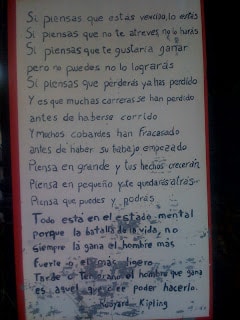 Si piensas que estás vencido, lo estás
Si piensas que no te atreves, no lo harás
Si piensas que te gustaría ganar
pero no puedes no lo lograrás
Si piensas que perderás ya has perdido
Y es que muchas carreras se han perdido
antes de haberse corrido
Y muchos cobardes han fracasado
antes de haber su trabajo empezado
Piensa en grande y tus hechos crecerán
Piensa en pequeño y te quedarás atrás
Piensa que puedes y podrás
Todo está en el estado mental
porque la batalla de la vida, no
siempre la gana el hombre más
fuerte o el más ligero
Tarde o temprano el hombre que gana
es aquel que cree poder hacerlo.
Rudyard Kipling